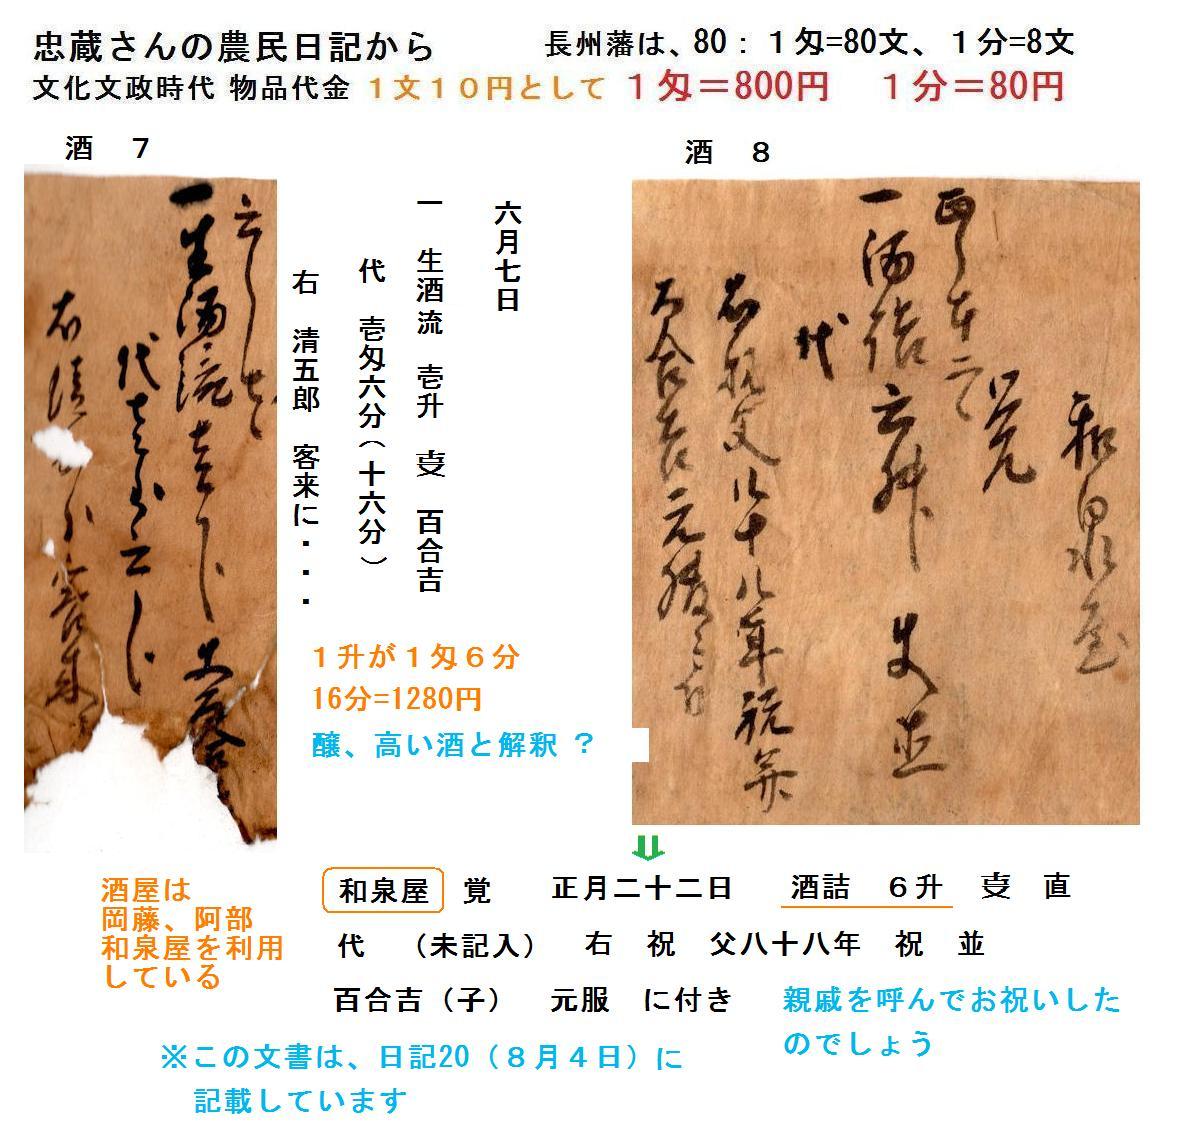 忠蔵さんの農民日記から
長州藩は、80：１匁=80文、１分=8文
文化文政時代 物品代金 １文１０円として １匁＝800円 １分＝80円
酒 ７
六月七日
一 生酒流 壱升 㕝 百合吉
代 壱匁六分（十六分）
右 清五郎 客来に・・・
１升が１匁６分
16分=1280円
醸、高い酒と解釈 ？
酒 ８
和泉屋
覚
正月廿二日
一酒詰 六升
代
右祝父八十八年祝並
百合吉元服
酒屋は
岡藤、阿部
和泉屋を利用
している
和泉屋 覚 正月二十二日 酒詰 ６升 㕝 直
代 （未記入） 右 祝 父八十八年 祝 並
百合吉（子） 元服 に付き
親戚を呼んでお祝いした
のでしょう
※この文書は、日記20（８月４日）に
記載しています